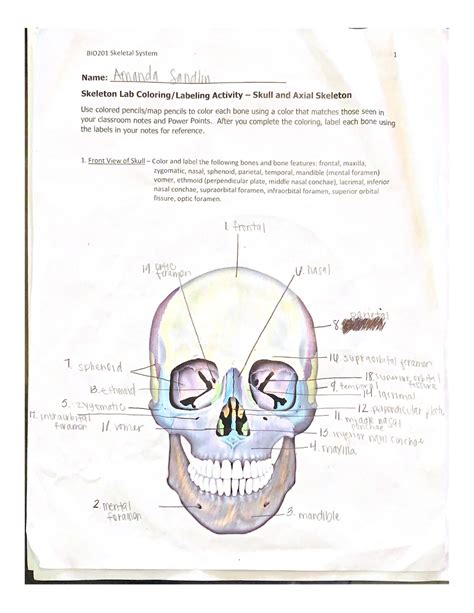 BIO201 Skeletal System
1
Name: Amanda Sandlin
Skeleton Lab Coloring/Labeling Activity – Skull and Axial Skeleton
Use colored pencils/map pencils to color each bone using a color that matches those seen in
your classroom notes and Power Points. After you complete the coloring, label each bone using
the labels in your notes for reference.
1. Front View of Skull – Color and label the following bones and bone features: frontal, maxilla,
zygomatic, nasal, sphenoid, parietal, temporal, mandible (mental foramen)
vomer, ethmoid (perpendicular plate, middle nasal conchae), lacrimal, inferior
nasal conchae, supraorbital foramen, infraorbital foramen, superior orbital
fissure, optic foramen.
1. frontal
optic
foramen
nasal
parietal
8.
7. sphenoid
16. supraorbital foramen
18. superior orbital
fissure
9. temporal
13. ethmoid
14. lacrimal
5. zygomatic
12. perpendicular plate
foramen
11. nasal
conchae
vomer
15. inferior nasal conchae
4. maxilla
2. mental
foramen
3. mandible